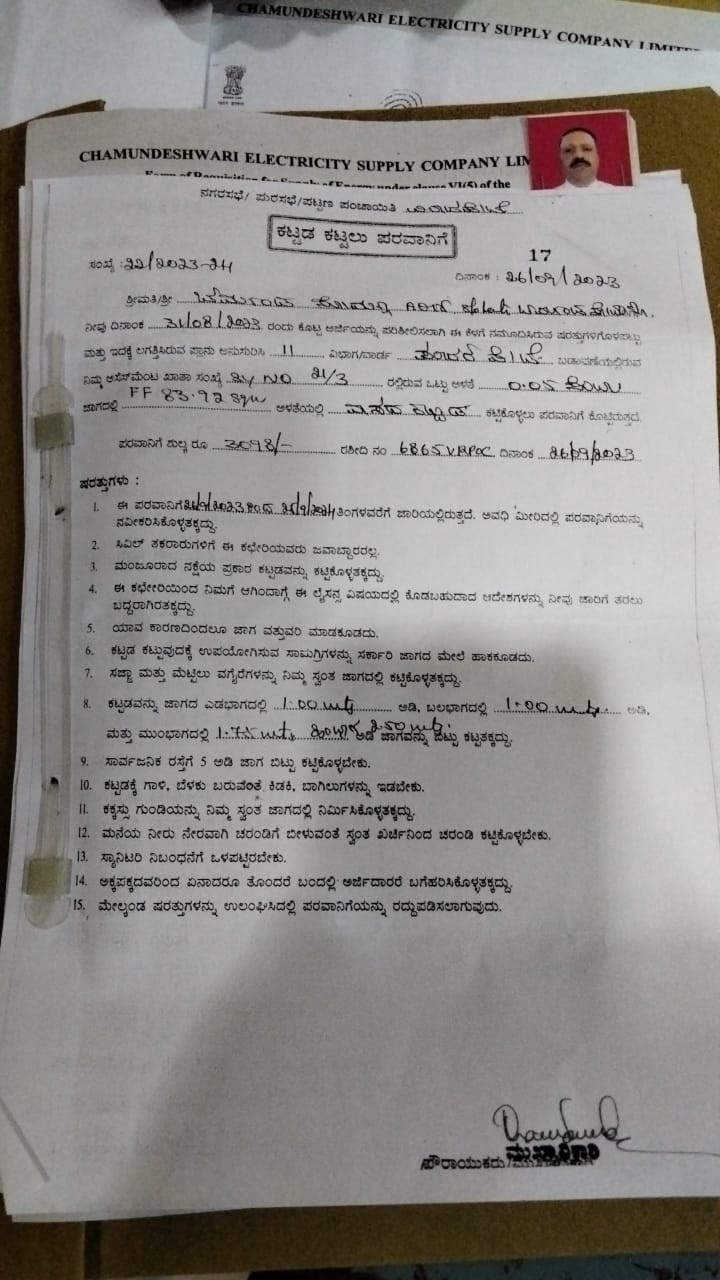 CHAMUNDESHWARI ELECTRICITY SUPPLY COMPANY LIMITE
CHAMUNDESHWARI ELECTRICITY SUPPLY COMPANY LIM
Form of Requisition for Supply of Energy under clause VI(5) of the
ನಗರಸಭೆ/ ಪುರಸಭೆ/ಪಟ್ಟಣ ಪಂಚಾಯಿತಿ
ಕಟ್ಟಡ ಕಟ್ಟಲು ಪರವಾನಿಗೆ
17
ಸಂಖ್ಯೆ : 22/2023-24 ದಿನಾಂಕ : 26/09/2023
ಶ್ರೀಮತಿ/ಶ್ರೀ
ನೀವು ದಿನಾಂಕ 31/08/2023 ರಂದು ಕೊಟ್ಟ ಅರ್ಜಿಯನ್ನು ಪರಿಶೀಲಿಸಲಾಗಿ ಈ ಕೆಳಗೆ ನಮೂದಿಸಿರುವ ಷರತ್ತುಗಳಿಗೊಳಪಟ್ಟು
ಮತ್ತು ಇದಕ್ಕೆ ಲಗತ್ತಿಸಿರುವ ಪ್ಲಾನು ಅನುಸರಿಸಿ 11 ವಿಭಾಗ/ವಾರ್ಡು ಬಡಾವಣೆಯಲ್ಲಿರುವ
ನಿಮ್ಮ ಅಸೆಸ್‌ಮೆಂಟ ಖಾತಾ ಸಂಖ್ಯೆ Sy NO 21/3 ರಲ್ಲಿರುವ ಒಟ್ಟು ಅಳತೆ 0.05 ಕುಂಟೆ
ಜಾಗದಲ್ಲಿ FF 83.92 ಅಳತೆಯಲ್ಲಿ ವಾಸದ ಕಟ್ಟಡ ಕಟ್ಟಿಕೊಳ್ಳಲು ಪರವಾನಿಗೆ ಕೊಟ್ಟಿರುತ್ತದೆ.
ಪರವಾನಿಗೆ ಶುಲ್ಕ ರೂ 3098/- ರಶೀದಿ ನಂ 6865 ದಿನಾಂಕ 26/09/2023
ಷರತ್ತುಗಳು :
1. ಈ ಪರವಾನಿಗೆ ತಿಂಗಳವರೆಗೆ ಜಾರಿಯಲ್ಲಿರುತ್ತದೆ. ಅವಧಿ ಮೀರಿದಲ್ಲಿ ಪರವಾನಿಗೆಯನ್ನು
ನವೀಕರಿಸಿಕೊಳ್ಳತಕ್ಕದ್ದು.
2. ಸಿವಿಲ್ ತಕರಾರುಗಳಿಗೆ ಈ ಕಛೇರಿಯವರು ಜವಾಬ್ದಾರರಲ್ಲ.
3. ಮಂಜೂರಾದ ನಕ್ಷೆಯ ಪ್ರಕಾರ ಕಟ್ಟಡವನ್ನು ಕಟ್ಟಿಕೊಳ್ಳತಕ್ಕದ್ದು.
4. ಈ ಕಛೇರಿಯಿಂದ ನಿಮಗೆ ಆಗಿಂದಾಗ್ಗೆ ಈ ಲೈಸನ್ಸ ವಿಷಯದಲ್ಲಿ ಕೊಡಬಹುದಾದ ಆದೇಶಗಳನ್ನು ನೀವು ಜಾರಿಗೆ ತರಲು
ಬದ್ದರಾಗಿರತಕ್ಕದ್ದು.
5. ಯಾವ ಕಾರಣದಿಂದಲೂ ಜಾಗ ವತ್ತುವರಿ ಮಾಡಕೂಡದು.
6. ಕಟ್ಟಡ ಕಟ್ಟುವುದಕ್ಕೆ ಉಪಯೋಗಿಸುವ ಸಾಮಗ್ರಿಗಳನ್ನು ಸರ್ಕಾರಿ ಜಾಗದ ಮೇಲೆ ಹಾಕಕೂಡದು.
7. ಸಜ್ಜಾ ಮತ್ತು ಮೆಟ್ಟಿಲು ವಗೈರೆಗಳನ್ನು ನಿಮ್ಮ ಸ್ವಂತ ಜಾಗದಲ್ಲಿ ಕಟ್ಟಿಕೊಳ್ಳತಕ್ಕದ್ದು.
8. ಕಟ್ಟಡವನ್ನು ಜಾಗದ ಎಡಭಾಗದಲ್ಲಿ 1.00 mtr ಅಡಿ, ಬಲಭಾಗದಲ್ಲಿ 1.00 mtr. ಅಡಿ,
ಮತ್ತು ಮುಂಭಾಗದಲ್ಲಿ 1.75 mtr, 2.50 mtr. ಅಡಿ ಜಾಗವನ್ನು ಬಿಟ್ಟು ಕಟ್ಟತಕ್ಕದ್ದು.
9. ಸಾರ್ವಜನಿಕ ರಸ್ತೆಗೆ 5 ಅಡಿ ಜಾಗ ಬಿಟ್ಟು ಕಟ್ಟಿಕೊಳ್ಳಬೇಕು.
10. ಕಟ್ಟಡಕ್ಕೆ ಗಾಳಿ, ಬೆಳಕು ಬರುವಂತೆ ಕಿಡಕಿ, ಬಾಗಿಲುಗಳನ್ನು ಇಡಬೇಕು.
11. ಕಕ್ಕಸ್ಸು ಗುಂಡಿಯನ್ನು ನಿಮ್ಮ ಸ್ವಂತ ಜಾಗದಲ್ಲಿ ನಿರ್ಮಿಸಿಕೊಳ್ಳತಕ್ಕದ್ದು.
12. ಮನೆಯ ನೀರು ನೇರವಾಗಿ ಚರಂಡಿಗೆ ಬೀಳುವಂತೆ ಸ್ವಂತ ಖರ್ಚಿನಿಂದ ಚರಂಡಿ ಕಟ್ಟಿಕೊಳ್ಳಬೇಕು.
13. ಸ್ಯಾನಿಟರಿ ನಿಬಂಧನೆಗೆ ಒಳಪಟ್ಟಿರಬೇಕು.
14. ಅಕ್ಕಪಕ್ಕದವರಿಂದ ಏನಾದರೂ ತೊಂದರೆ ಬಂದಲ್ಲಿ ಅರ್ಜಿದಾರರೆ ಬಗೆಹರಿಸಿಕೊಳ್ಳತಕ್ಕದ್ದು.
15. ಮೇಲ್ಕಂಡ ಷರತ್ತುಗಳನ್ನು ಉಲಂಘಿಸಿದಲ್ಲಿ ಪರವಾನಿಗೆಯನ್ನು ರದ್ದುಪಡಿಸಲಾಗುವುದು.
ಪೌರಾಯುಕ್ತರು/ಮುಖ್ಯಾಧಿಕಾರಿ